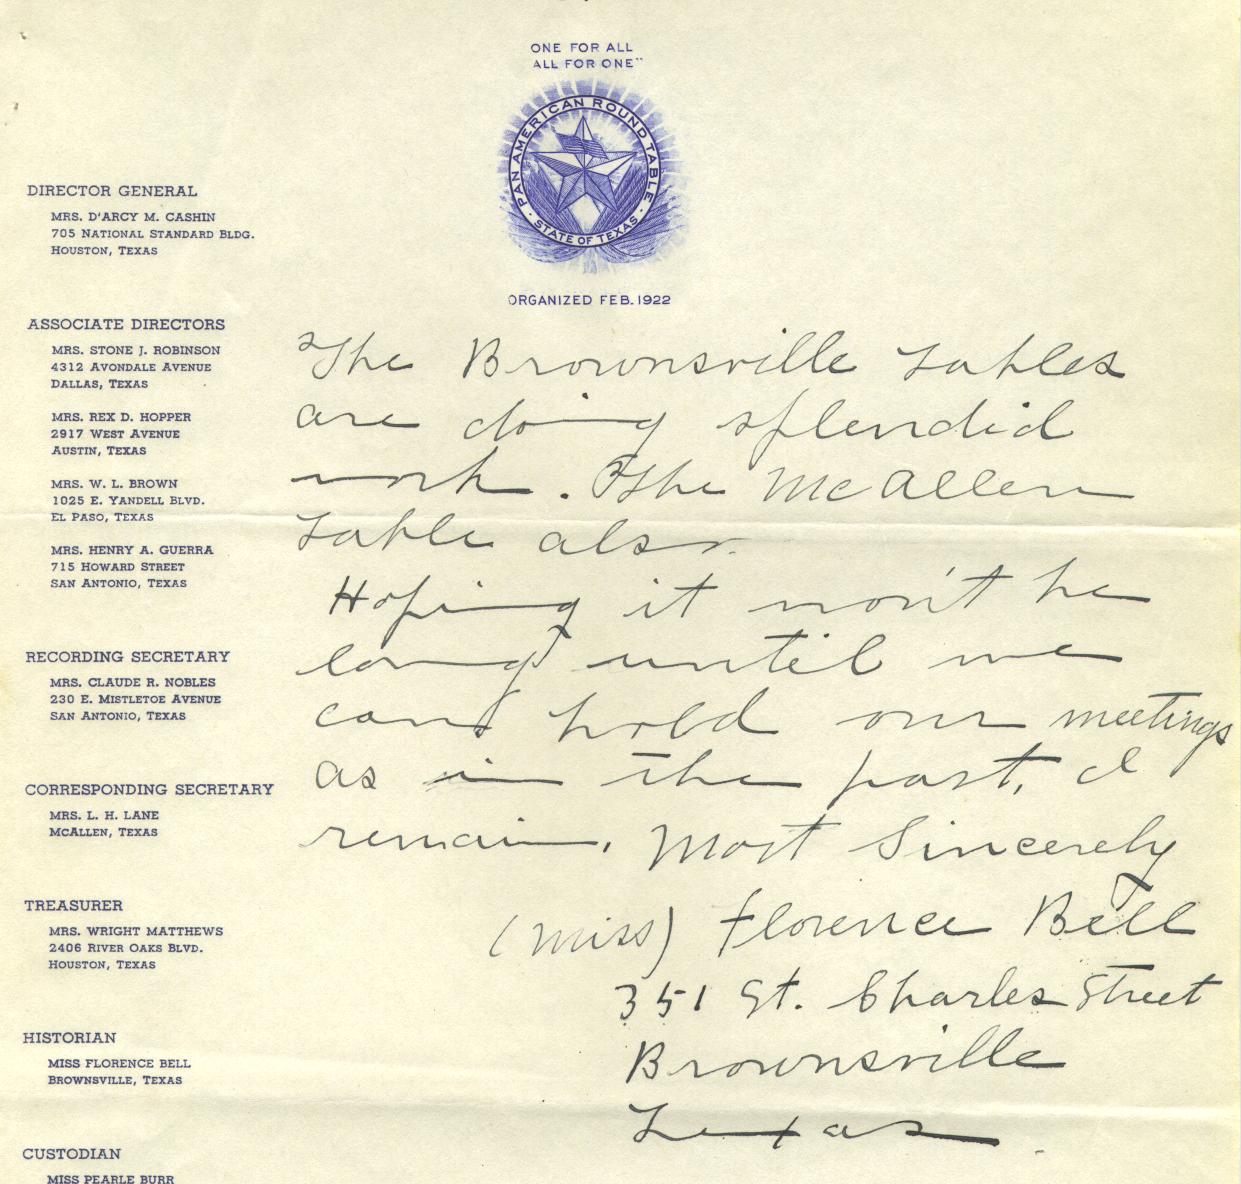 ONE FOR ALL
ALL FOR ONE"
PAN AMERICAN ROUND TABLE
· STATE OF TEXAS ·
ORGANIZED FEB. 1922
DIRECTOR GENERAL
MRS. D'ARCY M. CASHIN
705 NATIONAL STANDARD BLDG.
HOUSTON, TEXAS
ASSOCIATE DIRECTORS
MRS. STONE J. ROBINSON
4312 AVONDALE AVENUE
DALLAS, TEXAS
MRS. REX D. HOPPER
2917 WEST AVENUE
AUSTIN, TEXAS
MRS. W. L. BROWN
1025 E. YANDELL BLVD.
EL PASO, TEXAS
MRS. HENRY A. GUERRA
715 HOWARD STREET
SAN ANTONIO, TEXAS
RECORDING SECRETARY
MRS. CLAUDE R. NOBLES
230 E. MISTLETOE AVENUE
SAN ANTONIO, TEXAS
CORRESPONDING SECRETARY
MRS. L. H. LANE
MCALLEN, TEXAS
TREASURER
MRS. WRIGHT MATTHEWS
2406 RIVER OAKS BLVD.
HOUSTON, TEXAS
HISTORIAN
MISS FLORENCE BELL
BROWNSVILLE, TEXAS
CUSTODIAN
MISS PEARLE BURR
The Brownsville tables
are doing splendid
work. The McAllen
table also.
Hoping it won't be
long until we
can hold our meetings
as in the past, I
remain, Most Sincerely
(Miss) Florence Bell
351 St. Charles Street
Brownsville
Texas